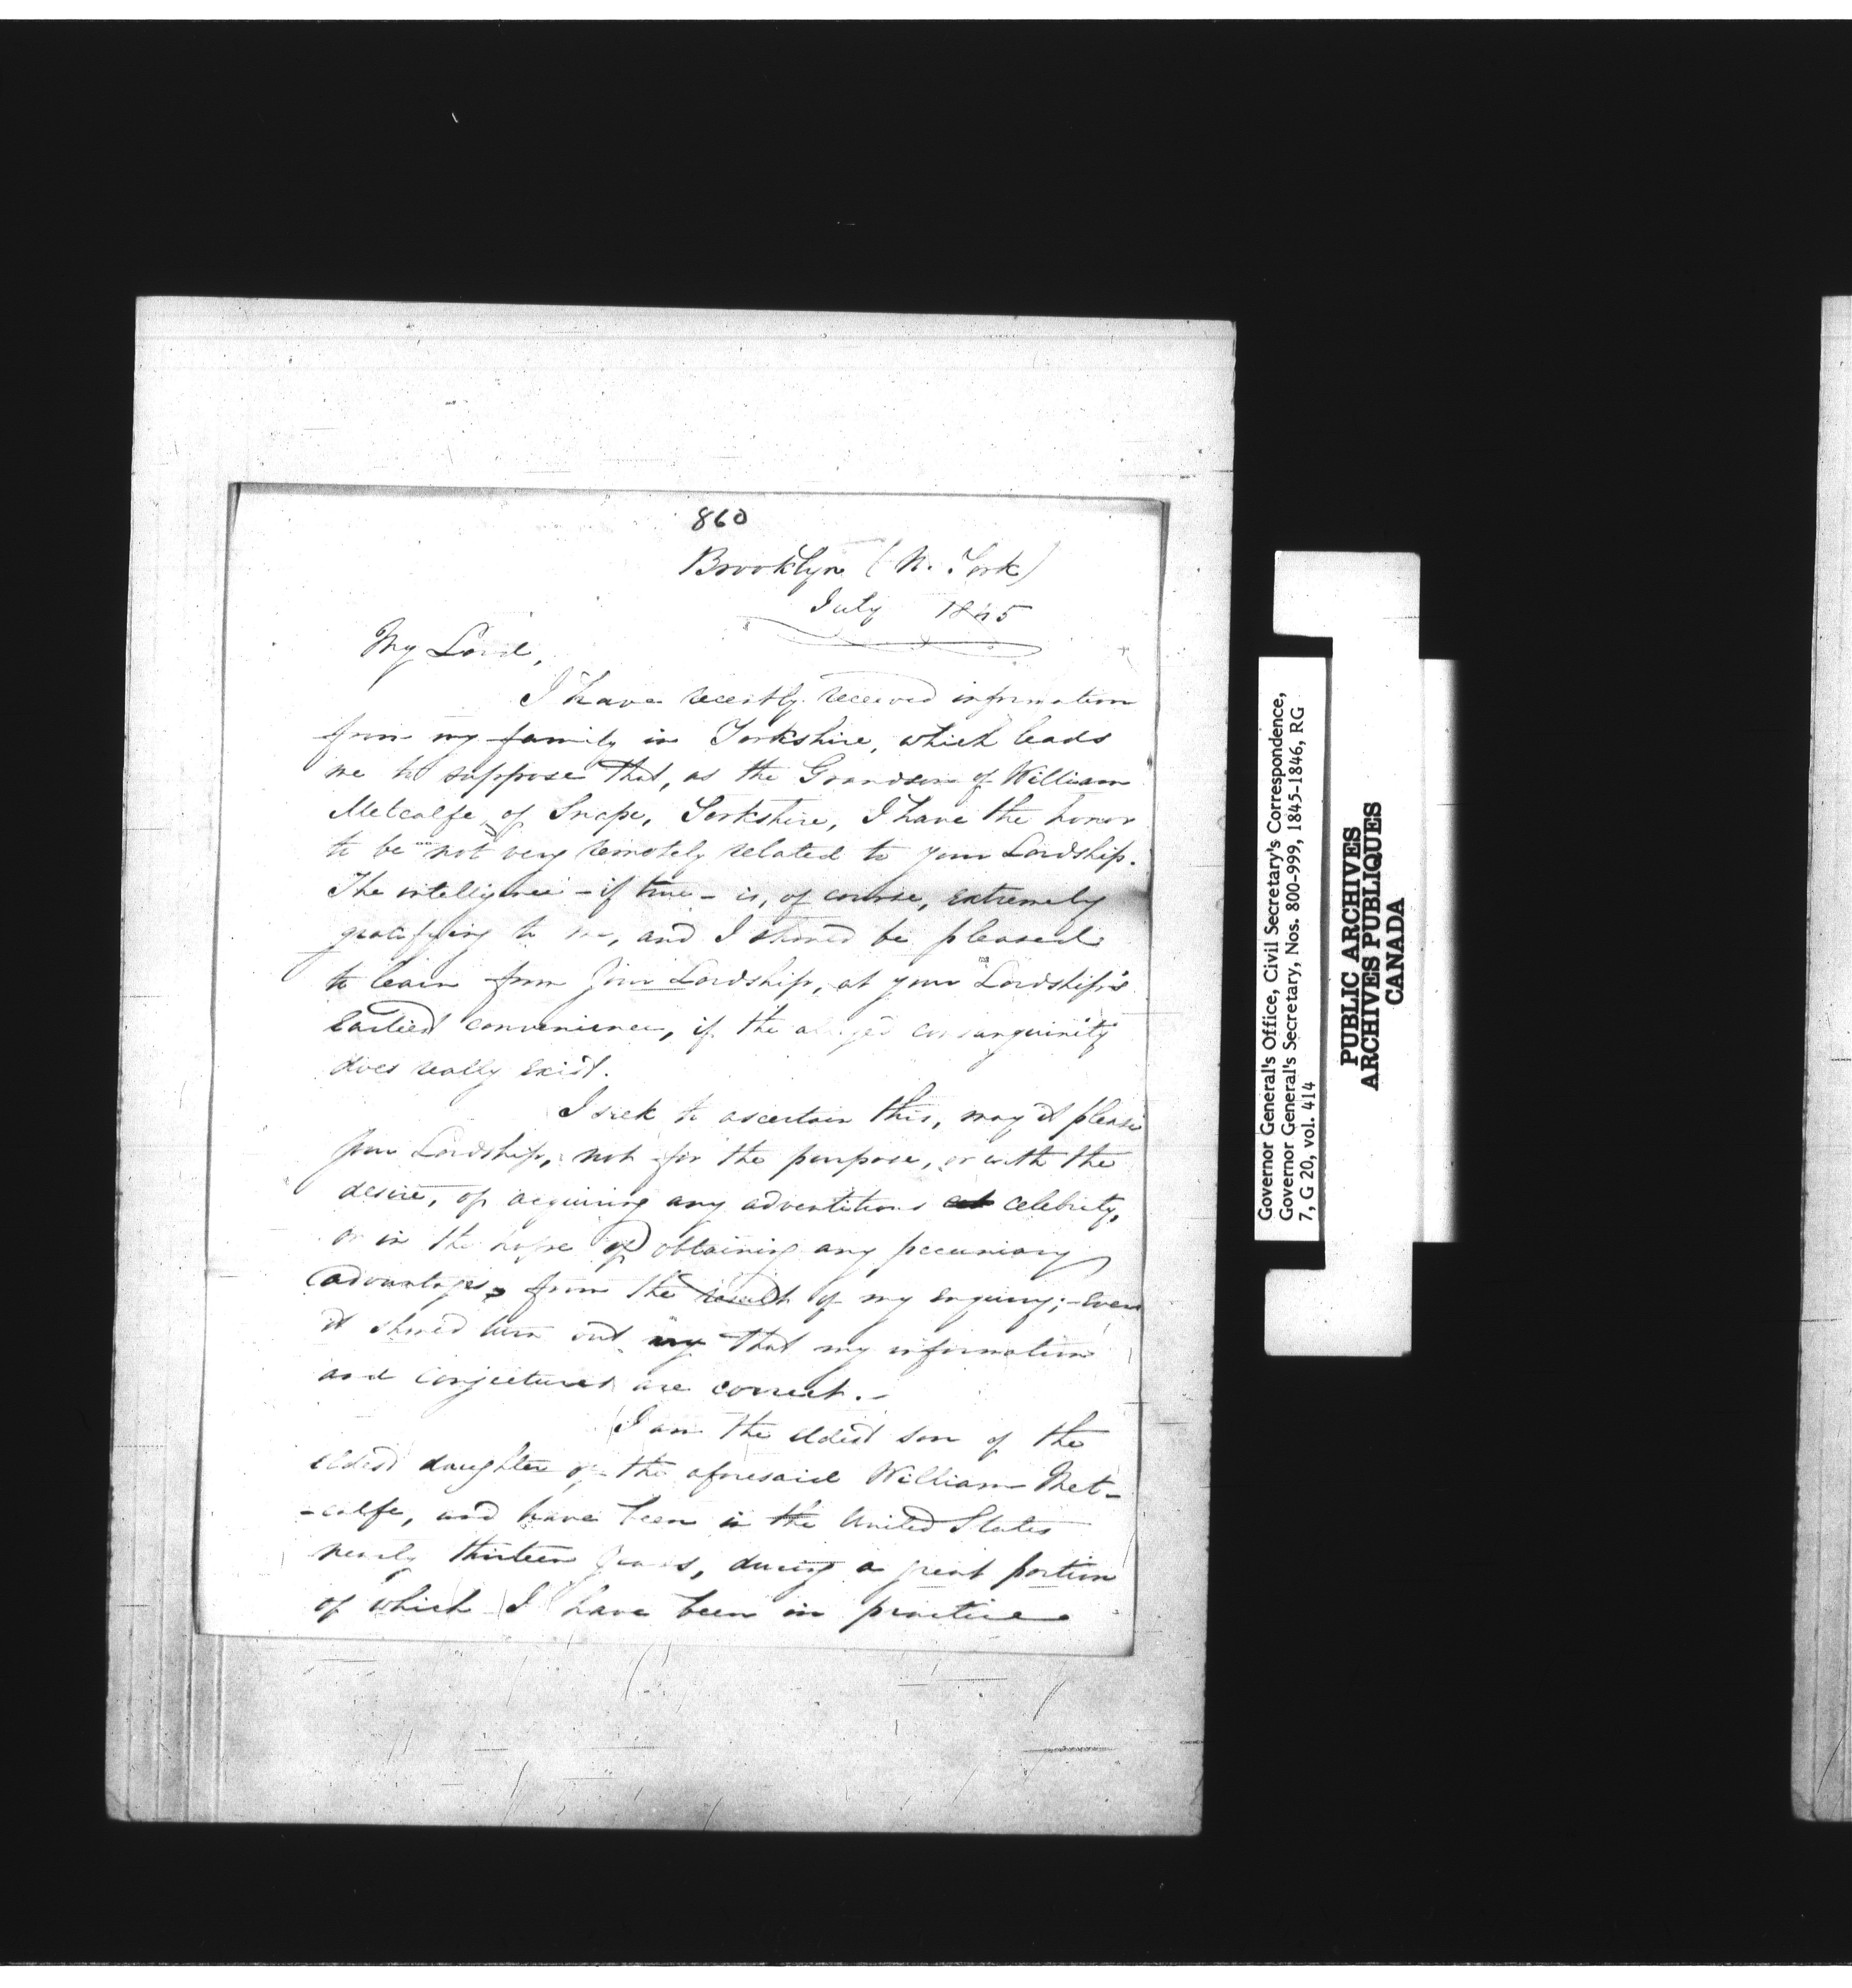 860
Brooklyn (N. York)
July 1845
My Lord,
I have recently received information
from my family in Yorkshire, which leads
me to suppose that, as the Grandson of William
Metcalfe, of Snape, Yorkshire, I have the honor
to be not very remotely related to your Lordship.
The intelligence – if true – is, of course, extremely
gratifying to me, and I should be pleased
to learn from Your Lordship, at your Lordship's
Earliest convenience, if the alleged consanguinity
does really exist.
I seek to ascertain this, may it please
Your Lordship, not for the purpose, or with the
desire, of acquiring any adventitious celebrity,
or in the hope of obtaining any pecuniary
advantages, from the result of my Enquiry; – Even
it should turn out that my information
and conjectures are correct. –
I am the eldest son of the
eldest daughter of the aforesaid William Met-
-calfe, and have been in the United States
nearly thirteen years, during a great portion
of which I have been in practice
Governor General's Office, Civil Secretary's Correspondence,
Governor General's Secretary, Nos. 800-999, 1845-1846, RG
7, G 20, vol. 414
PUBLIC ARCHIVES
ARCHIVES PUBLIQUES
CANADA